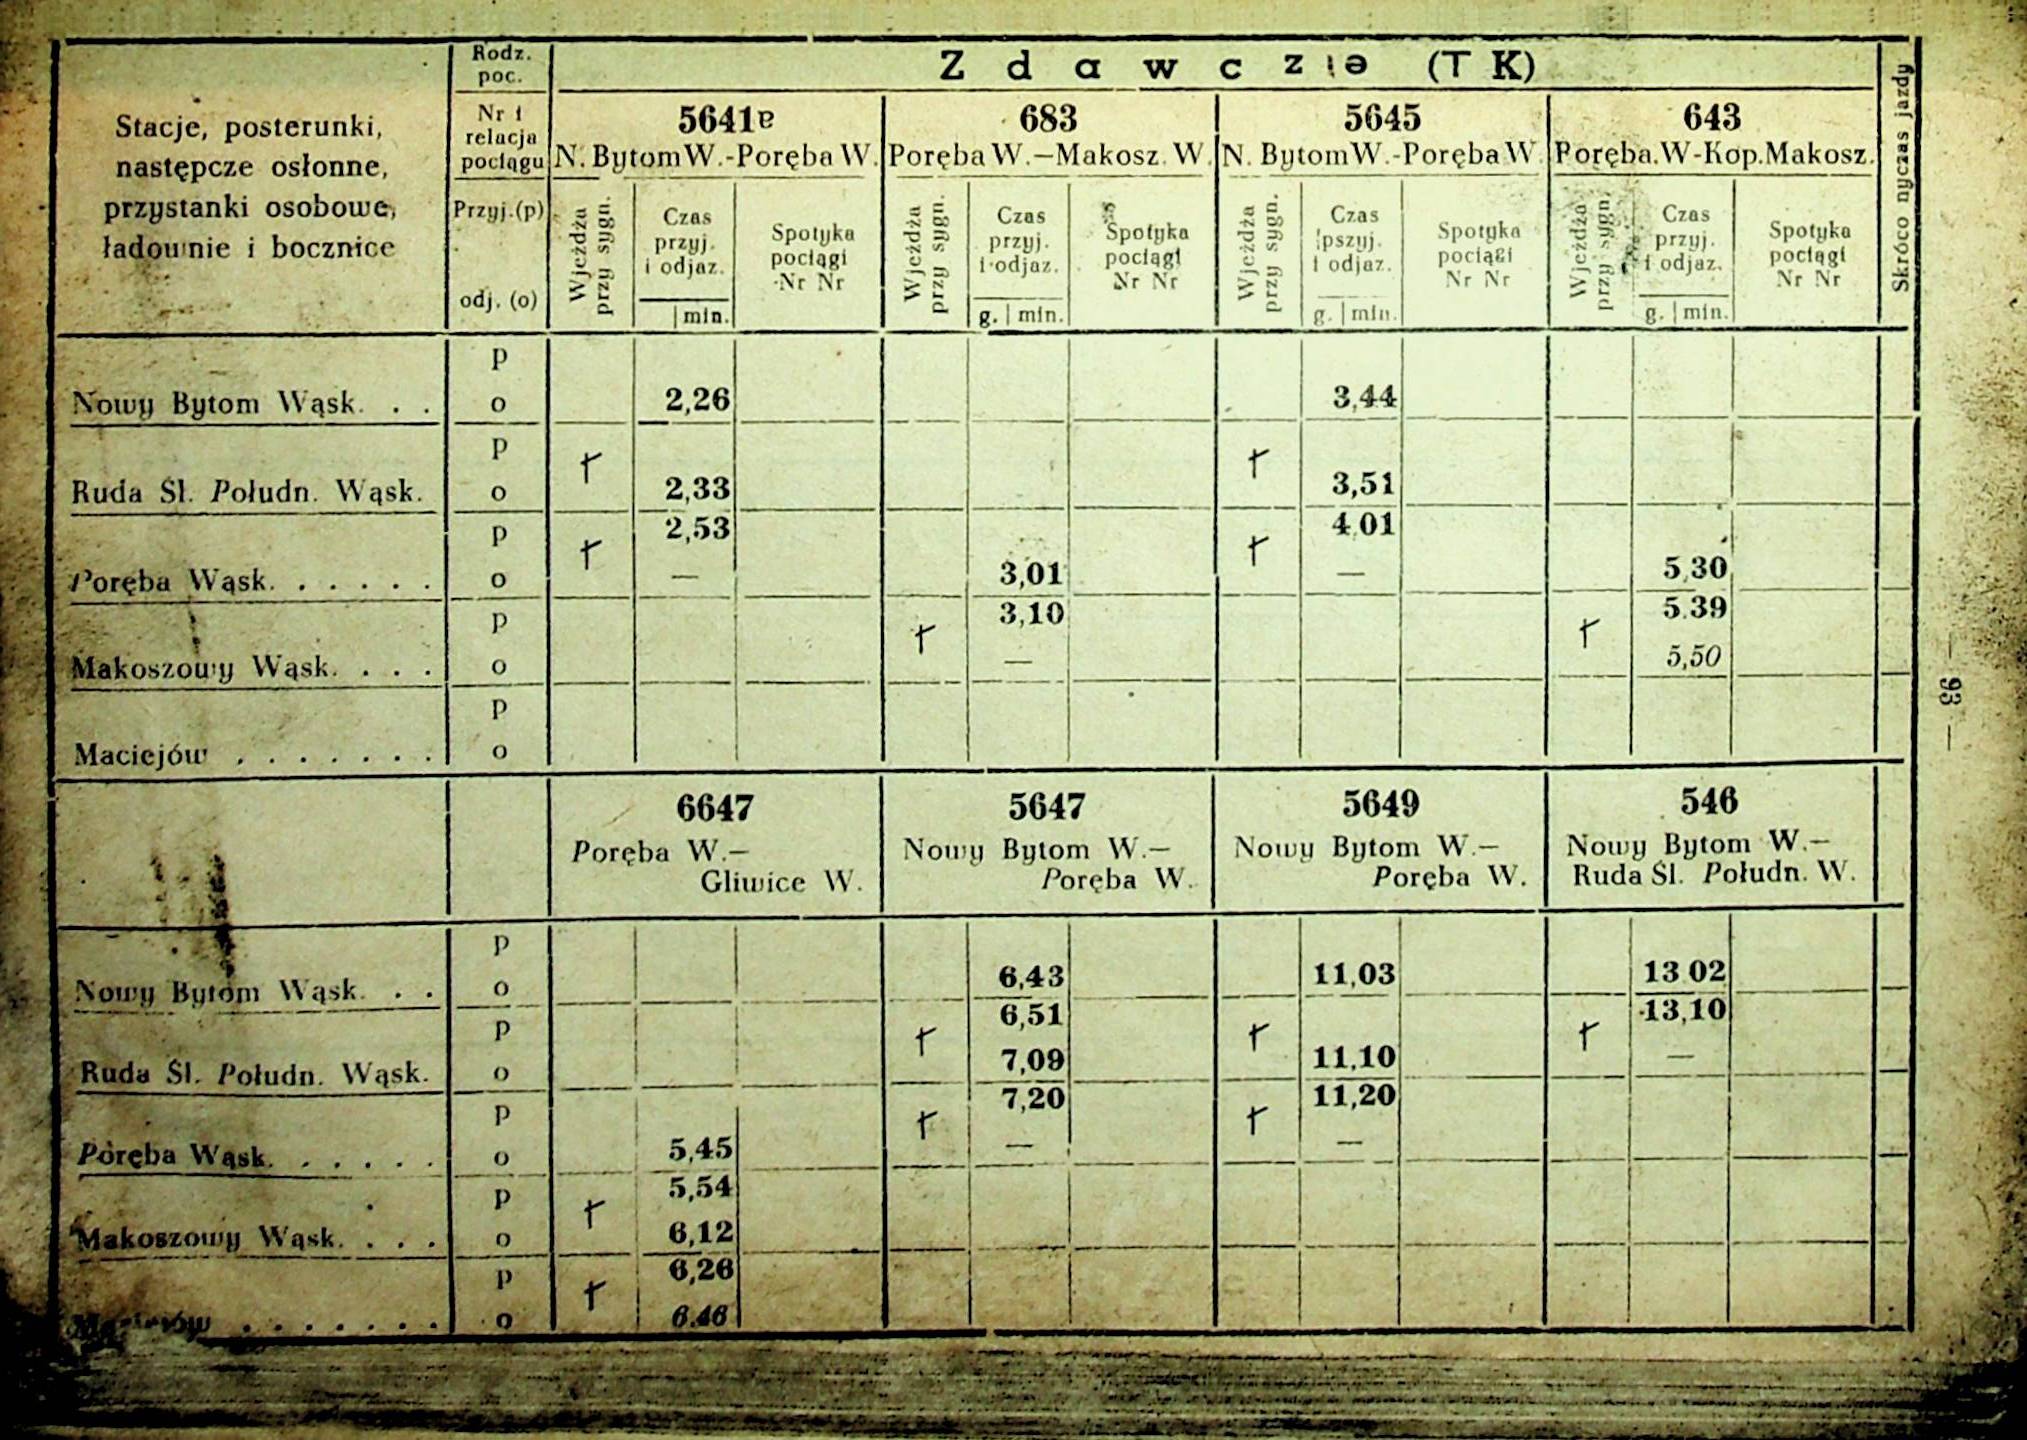 Rodz. poc.
Zdawcze (TK)
Skróco ny czas jazdy
Stacje, posterunki,
następcze osłonne,
przystanki osobowe,
ładownie i bocznice
Nr i
relacja
pociągu
Przyj.(p)
odj. (o)
5641a 683 5645 643
N. Bytom W.-Poręba W. Poręba W.—Makosz. W. N. Bytom W.-Poręba W Poręba.W-Kop.Makosz.
Wjeżdża przy sygn. Czas przyj. i odjaz. | min. Spotyka pociągi Nr Nr
Wjeżdża przy sygn. Czas przyj. i odjaz. g. | min. Spotyka pociągi Nr Nr
Wjeżdża przy sygn. Czas pszyj. i odjaz. g. | min. Spotyka pociągi Nr Nr
Wjeżdża przy sygn. Czas przyj. i odjaz. g. | min. Spotyka pociągi Nr Nr
p
Nowy Bytom Wąsk. . . o 2,26 3,44
p † †
Ruda Śl. Połudn. Wąsk. o 2,33 3,51
p † 2,53 † 4.01
Poręba Wąsk. . . . . . o — 3,01 — 5,30
p † 3,10 † 5.39
Makoszowy Wąsk. . . . o — 5,50
p
Maciejów . . . . . . . o
— 93 —
6647 5647 5649 546
Poręba W.— Nowy Bytom W.— Nowy Bytom W.— Nowy Bytom W.—
Gliwice W. Poręba W. Poręba W. Ruda Śl. Połudn. W.
p
Nowy Bytom Wąsk. . . o 6,43 11,03 13 02
p † 6,51 † † 13,10
Ruda Śl. Połudn. Wąsk. o 7,09 11,10 —
p † 7,20 † 11,20
Poręba Wąsk. . . . . . o 5,45 — —
p † 5,54
Makoszowy Wąsk. . . . o 6,12
p † 6,26
Maciejów . . . . . . . o 6.46